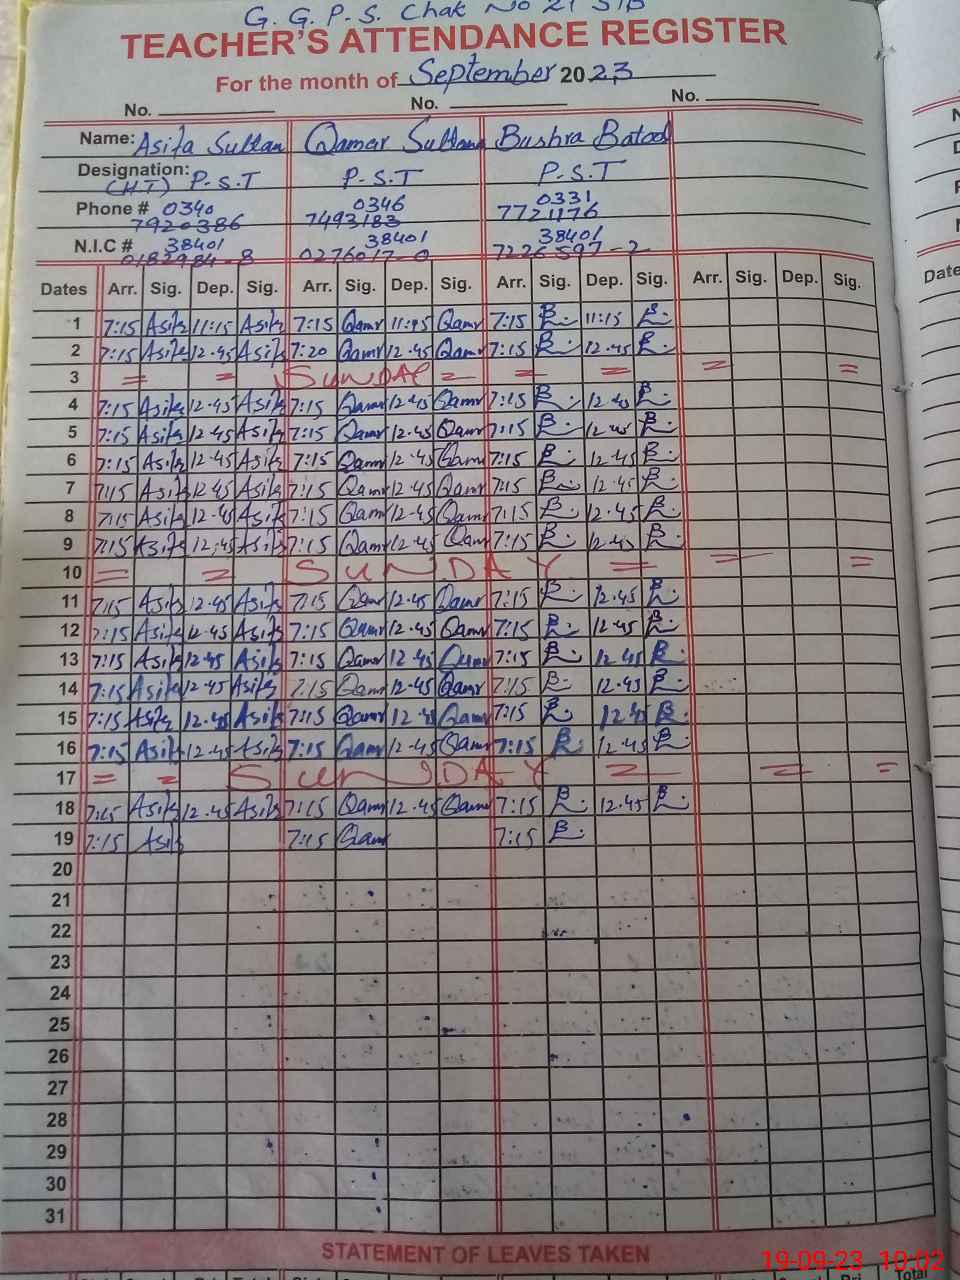 G. G. P. S. Chak No 21 SIB
TEACHER'S ATTENDANCE REGISTER
For the month of September 2023
No. No. No.
Name: Asifa Sultan Qamar Sultana Bushra Batool
Designation: (HT) P.S.T P.S.T P.S.T
Phone # 0340 0346 0331
7920386 7493183 7721176
N.I.C # 38401 38401 38401
0182984-8 0276017-0 7226597-2
Dates Arr. Sig. Dep. Sig. Arr. Sig. Dep. Sig. Arr. Sig. Dep. Sig. Arr. Sig. Dep. Sig.
1 7:15 Asifa 11:15 Asifa 7:15 Qamar 11:15 Qamar 7:15 B. 11:15 B.
2 7:15 Asifa 12.45 Asifa 7:20 Qamar 12.45 Qamar 7:15 B. 12.45 B.
3 = = SUNDAY = = = = =
4 7:15 Asifa 12.45 Asifa 7:15 Qamar 12.45 Qamar 7:15 B. 12.45 B.
5 7:15 Asifa 12.45 Asifa 7:15 Qamar 12.45 Qamar 7:15 B. 12.45 B.
6 7:15 Asifa 12.45 Asifa 7:15 Qamar 12.45 Qamar 7:15 B. 12.45 B.
7 7:15 Asifa 12.45 Asifa 7:15 Qamar 12.45 Qamar 7:15 B. 12.45 B.
8 7:15 Asifa 12.45 Asifa 7:15 Qamar 12.45 Qamar 7:15 B. 12.45 B.
9 7:15 Asifa 12.45 Asifa 7:15 Qamar 12.45 Qamar 7:15 B. 12.45 B.
10 = = SUNDAY = = =
11 7:15 Asifa 12.45 Asifa 7:15 Qamar 12.45 Qamar 7:15 B. 12.45 B.
12 7:15 Asifa 12.45 Asifa 7:15 Qamar 12.45 Qamar 7:15 B. 12.45 B.
13 7:15 Asifa 12.45 Asifa 7:15 Qamar 12.45 Qamar 7:15 B. 12.45 B.
14 7:15 Asifa 12.45 Asifa 7:15 Qamar 12.45 Qamar 7:15 B. 12.45 B.
15 7:15 Asifa 12.45 Asifa 7:15 Qamar 12.45 Qamar 7:15 B. 12.45 B.
16 7:15 Asifa 12.45 Asifa 7:15 Qamar 12.45 Qamar 7:15 B. 12.45 B.
17 = = SUNDAY = = =
18 7:15 Asifa 12.45 Asifa 7:15 Qamar 12.45 Qamar 7:15 B. 12.45 B.
19 7:15 Asifa 7:15 Qamar 7:15 B.
20
21
22
23
24
25
26
27
28
29
30
31
STATEMENT OF LEAVES TAKEN
19-09-23 10:02
Date
Total